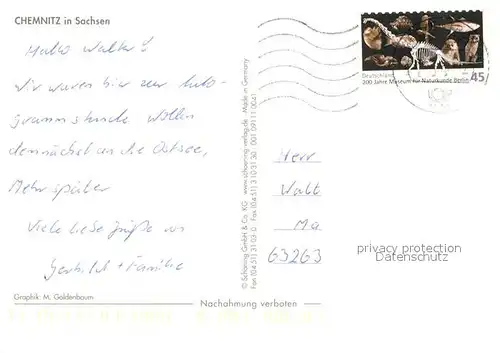 CHEMNITZ in Sachsen
Hallo Walter!
Wir waren hier zur Auto-
grammstunde. Wollen
demnächst an die Ostsee,
Mehr später
Viele liebe Grüße von
+ Familie
Graphik: M. Goldenbaum
© Schöning GmbH & Co. KG www.schoening-verlag.de Made in Germany
Fon (0451) 31 03-0 Fax (0451) 310 31 30
Nachahmung verboten
Deutschland
200 Jahre Museum für Naturkunde Berlin
45
Herr
Walt
Ma
63263
privacy protection
Datenschutz